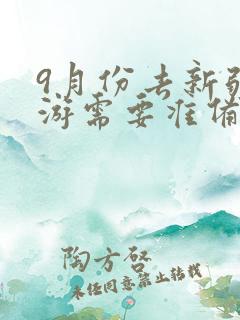 9月份去新疆
游需要准备
陶方启
未经同意禁止转载